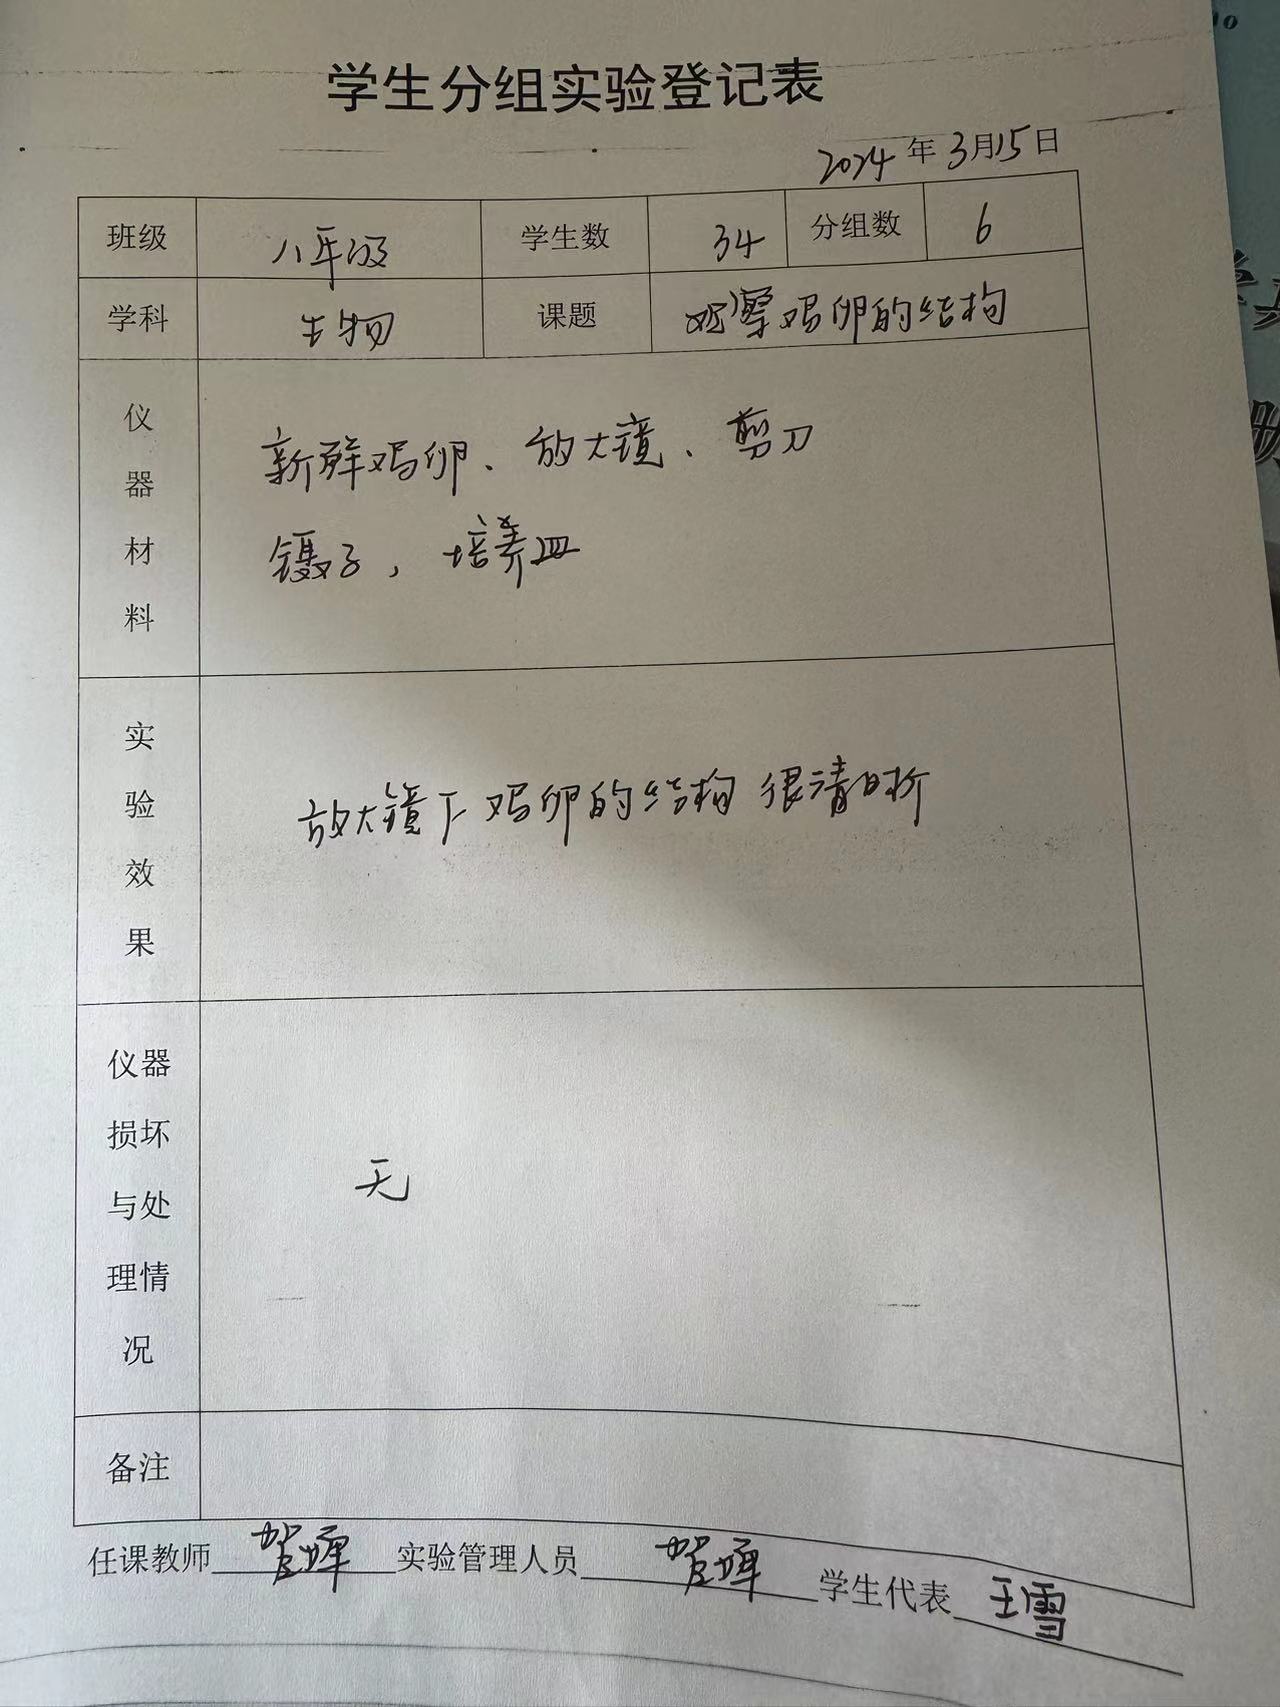 学生分组实验登记表
2024年3月15日
班级 八年级 学生数 34 分组数 6
学科 生物 课题 观察鸡卵的结构
仪器材料
新鲜鸡卵、放大镜、剪刀
镊子,培养皿
实验效果
放大镜下鸡卵的结构很清晰
仪器损坏与处理情况
无
备注
任课教师 贺婵 实验管理人员 贺婵 学生代表 王雪